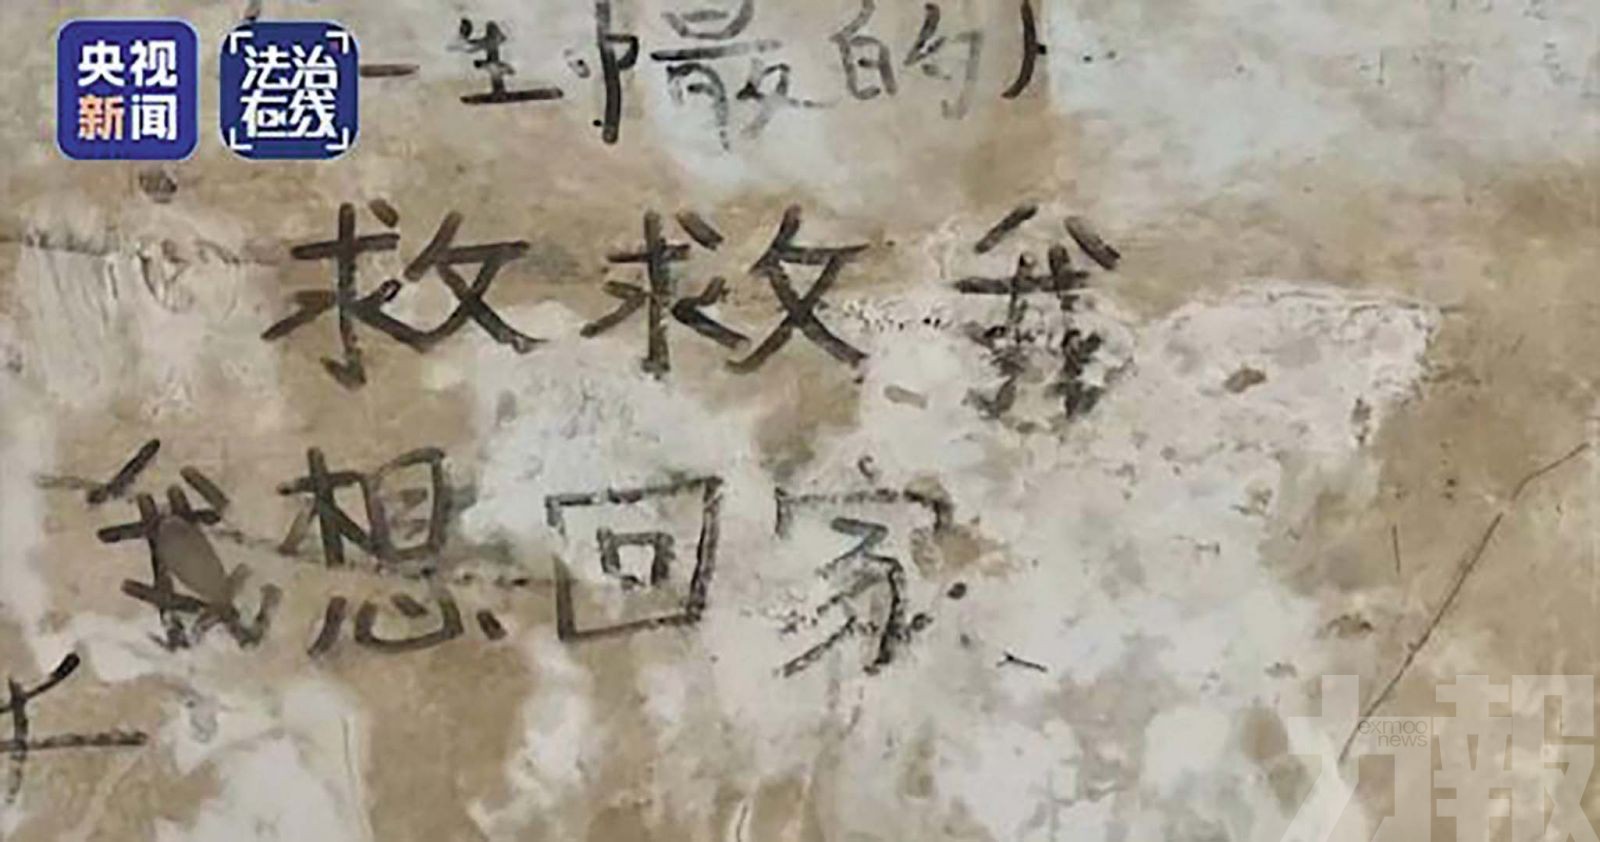 央视
新闻
法治
在线
一生中最的人
救救我
我想回家
exmoo
news
力報